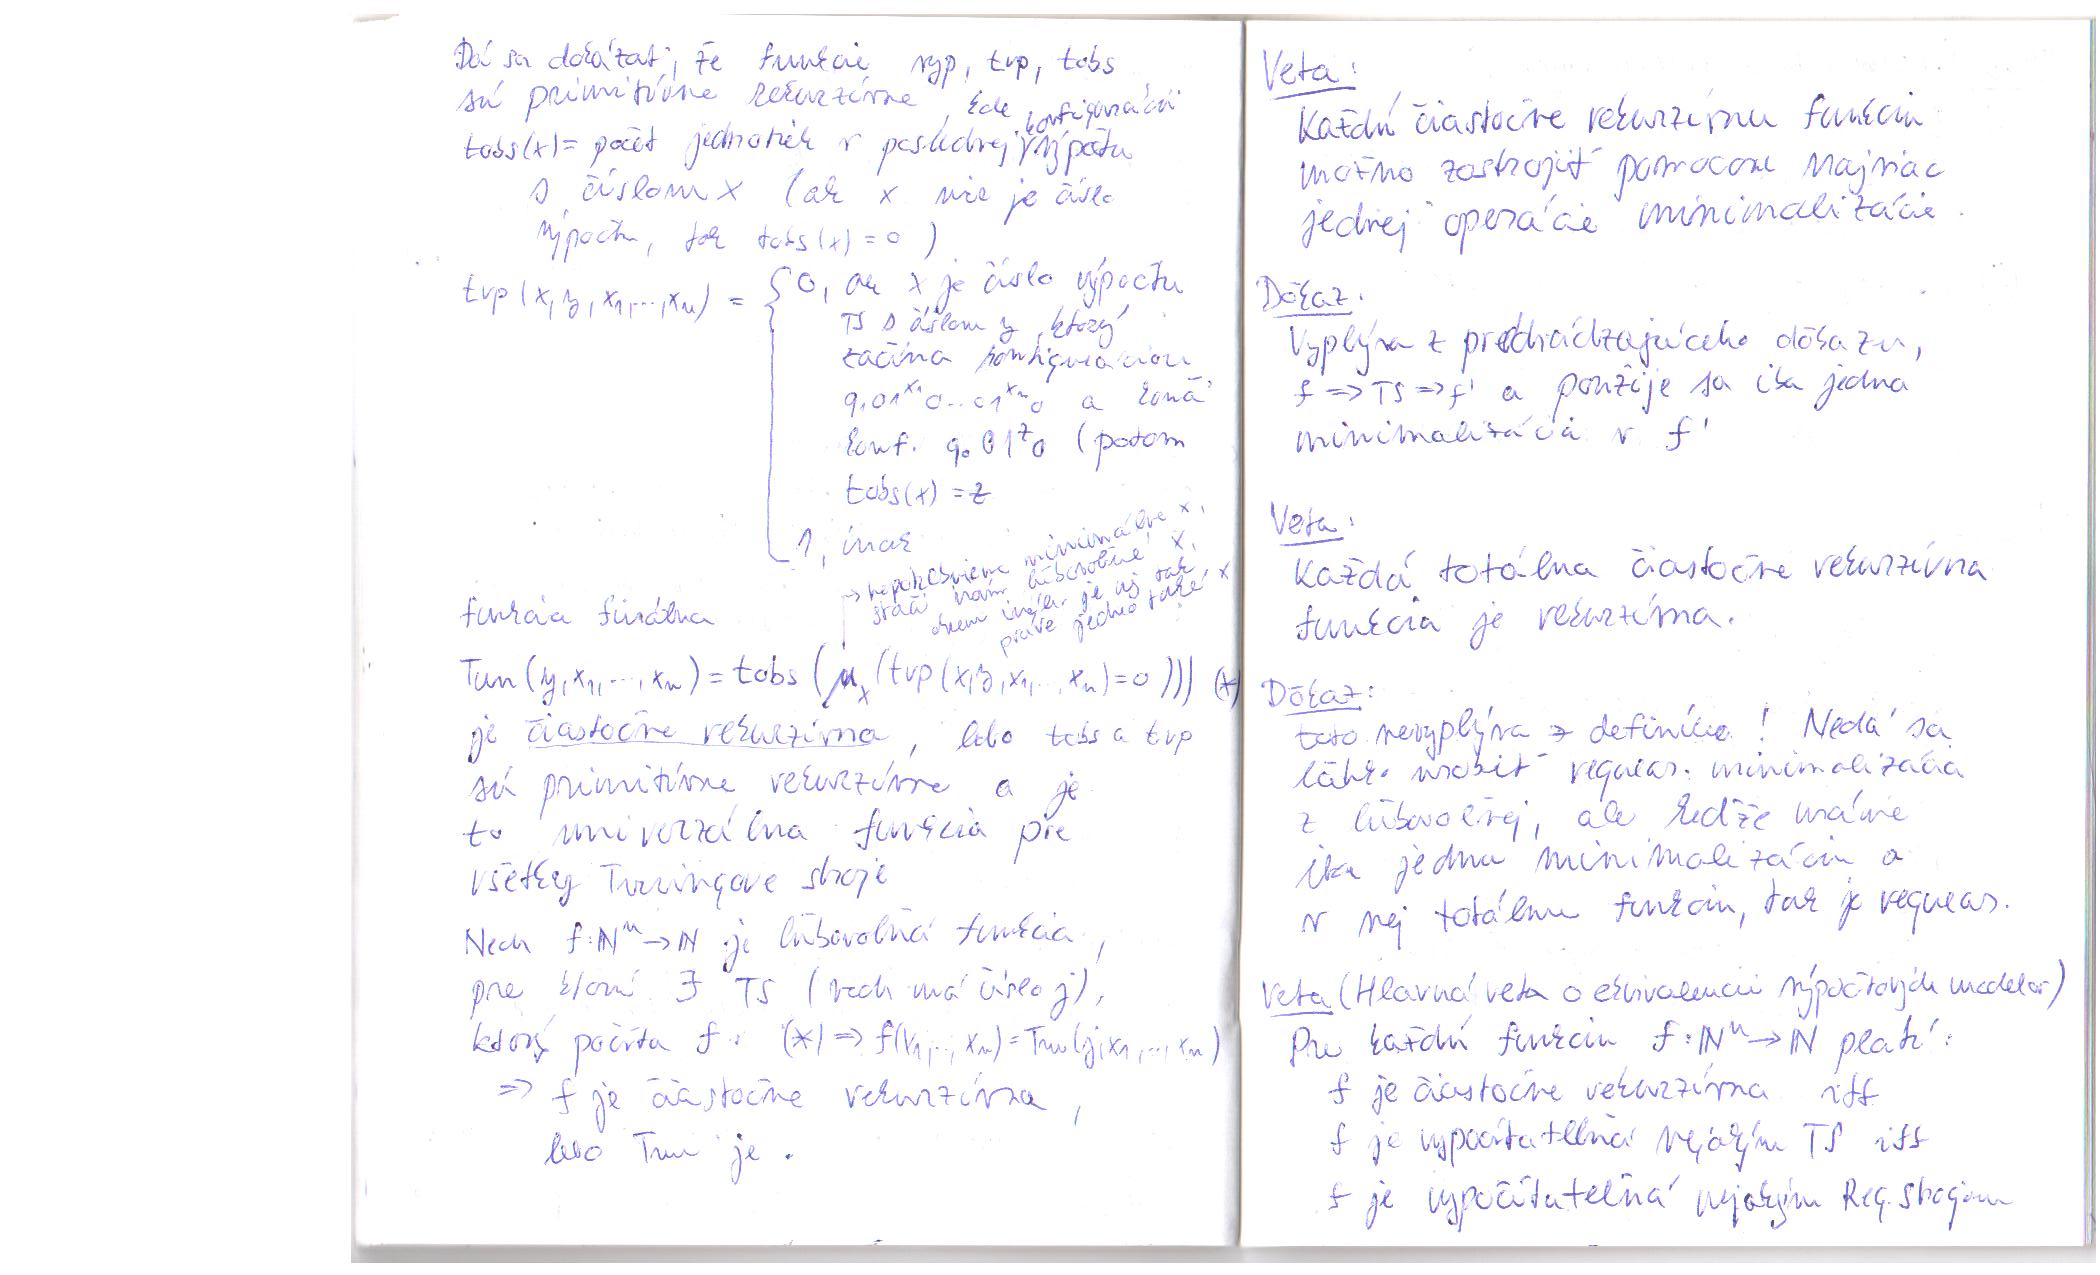 Dá sa dokázať, že funkcie vyp, tvp, tobs
sú primitívne rekurzívne, kde
tobs(x) = počet jednotiek v poslednej konfigurácii výpočtu
s číslom x (ak x nie je číslo
výpočtu, tak tobs(x)=0)
tvp(x,y,x₁,...,xₙ) = { 0, ak x je číslo výpočtu
TS s číslom y, ktorý
začína konfiguráciou
q₁01^x₁0...01^xₙ0 a končí
konf. q₀01^z0 (potom
tobs(x) = z
1, inak
→ nepotrebujeme minimálne x,
stačí nám ľubovoľné x,
okrem iného je aj tak
práve jedno také x
funkcia finálna
Tun(y,x₁,...,xₙ) = tobs(μₓ(tvp(x,y,x₁,...,xₙ)=0))) (*)
je čiastočne rekurzívna, lebo tobs a tvp
sú primitívne rekurzívne a je
to univerzálna funkcia pre
všetky Turingove stroje
Nech f:ℕⁿ→ℕ je ľubovoľná funkcia,
pre ktorú ∃ TS (nech má číslo j),
ktorý počíta f. (*) ⇒ f(x₁,...,xₙ)=Tun(j,x₁,...,xₙ)
⇒ f je čiastočne rekurzívna,
lebo Tun je.
Veta:
Každú čiastočne rekurzívnu funkciu
možno zostrojiť pomocou najviac
jednej operácie minimalizácie.
Dôkaz.
Vyplýva z predchádzajúceho dôkazu,
f ⇒ TS ⇒ f' a použije sa iba jedna
minimalizácia v f'
Veta:
Každá totálna čiastočne rekurzívna
funkcia je rekurzívna.
Dôkaz:
toto nevyplýva z definície! Nedá sa
ľahko urobiť regulár. minimalizácia
z ľubovoľnej, ale keďže máme
iba jednu minimalizáciu a
v nej totálnu funkciu, tak je regulár.
Veta (Hlavná veta o ekvivalencii výpočtových modelov)
Pre každú funkciu f:ℕⁿ→ℕ platí:
f je čiastočne rekurzívna iff
f je vypočítateľná nejakým TS iff
f je vypočítateľná nejakým Reg. strojom